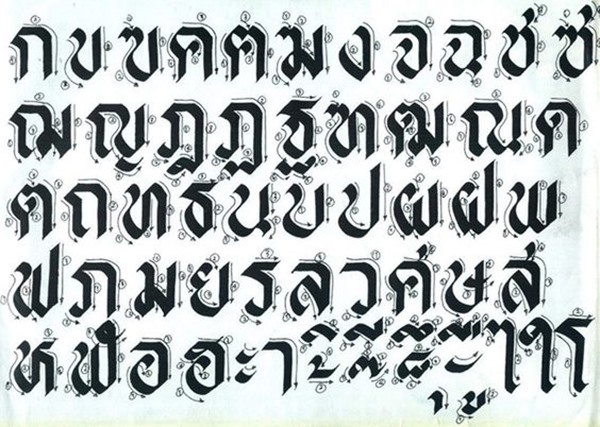 ก ข ฃ ค ฅ ฆ ง จ ฉ ช ซ
ฌ ญ ฎ ฏ ฐ ฑ ฒ ณ ด
ต ถ ท ธ น บ ป ผ ฝ พ
ฟ ภ ม ย ร ล ว ศ ษ ส
ห ฬ อ ฮ ะ า ไ ใ โ
ุ ู